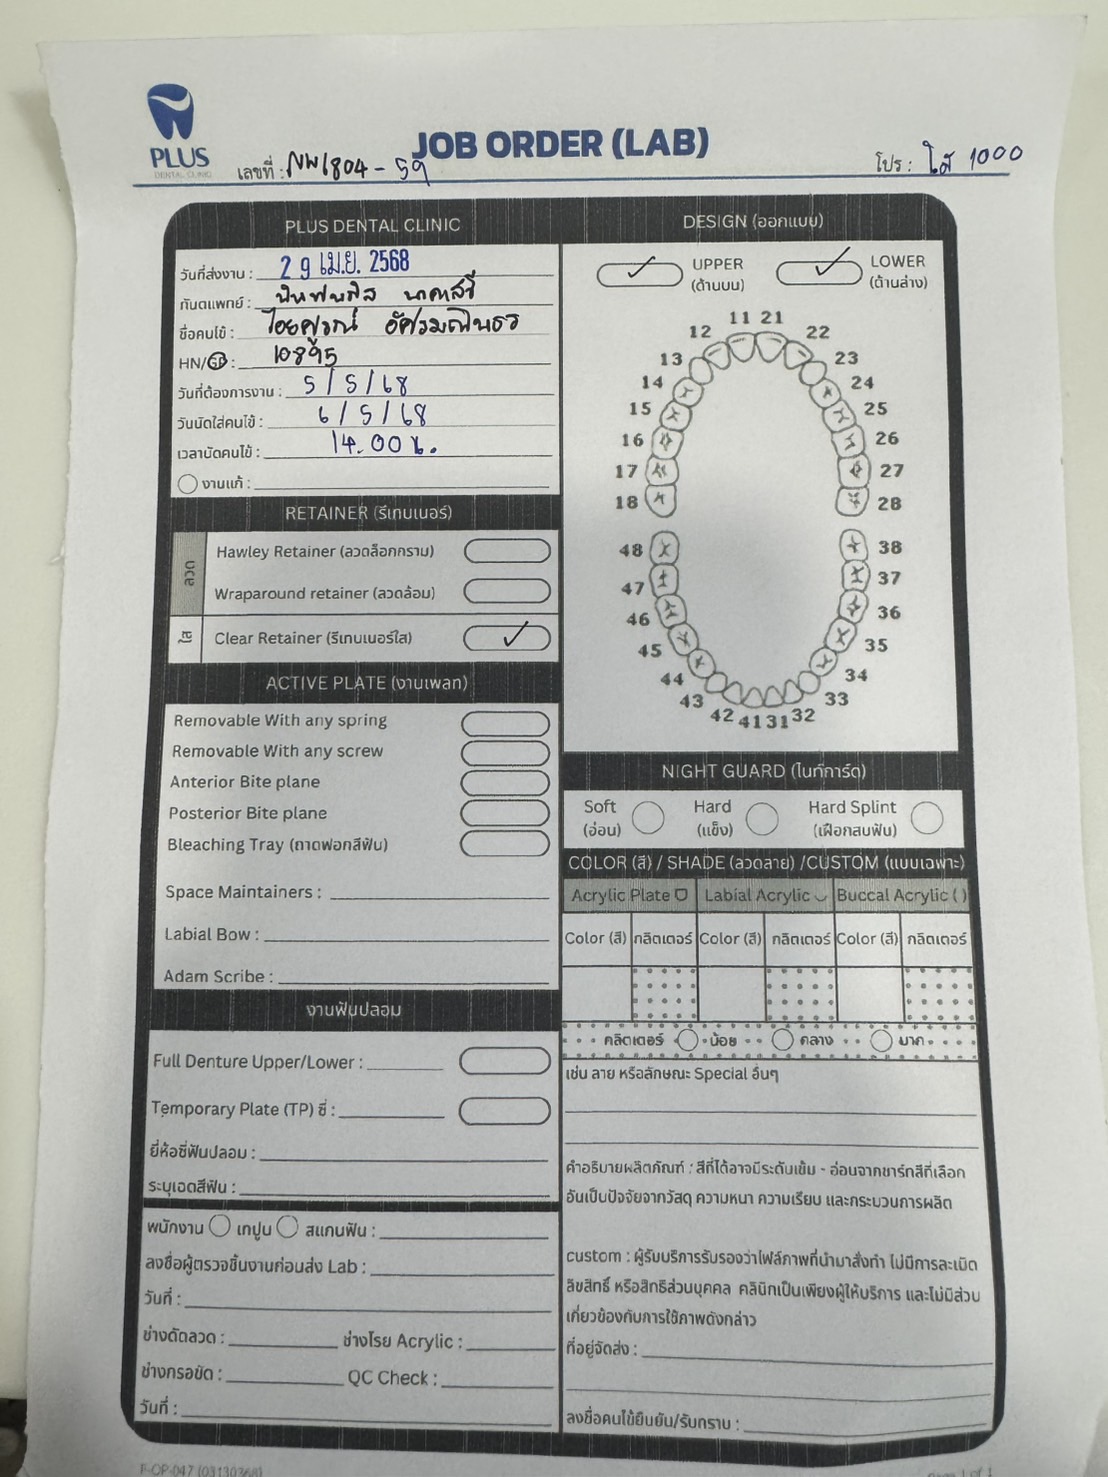 PLUS
DENTAL CLINIC
JOB ORDER (LAB)
เลขที่ : NW1804 - 59
โปร : ใส 1000
PLUS DENTAL CLINIC
วันที่ส่งงาน : 29 เม.ย. 2568
ทันตแพทย์ :
ชื่อคนไข้ :
HN/ : 10895
วันที่ต้องการงาน : 5/5/68
วันนัดใส่คนไข้ : 6/5/68
เวลานัดคนไข้ : 14.00 น.
งานแก้ :
RETAINER (รีเทนเนอร์)
ลวด
Hawley Retainer (ลวดล็อกกราม)
Wraparound retainer (ลวดล้อม)
ใส
Clear Retainer (รีเทนเนอร์ใส) ✓
ACTIVE PLATE (งานเพลท)
Removable With any spring
Removable With any screw
Anterior Bite plane
Posterior Bite plane
Bleaching Tray (ถาดฟอกสีฟัน)
Space Maintainers :
Labial Bow :
Adam Scribe :
งานฟันปลอม
Full Denture Upper/Lower :
Temporary Plate (TP) ซี่ :
ยี่ห้อซี่ฟันปลอม :
ระบุเฉดสีฟัน :
พนักงาน เทปูน สแกนฟัน :
ลงชื่อผู้ตรวจชิ้นงานก่อนส่ง Lab :
วันที่ :
ช่างดัดลวด : ช่างโรย Acrylic :
ช่างกรอขัด : QC Check :
วันที่ :
DESIGN (ออกแบบ)
✓ UPPER (ด้านบน) ✓ LOWER (ด้านล่าง)
11 21
12 22
13 23
14 24
15 25
16 26
17 27
18 28
48 38
47 37
46 36
45 35
44 34
43 33
42 41 31 32
NIGHT GUARD (ไนท์การ์ด)
Soft (อ่อน) Hard (แข็ง) Hard Splint (เฝือกสบฟัน)
COLOR (สี) / SHADE (ลวดลาย) /CUSTOM (แบบเฉพาะ)
Acrylic Plate Labial Acrylic Buccal Acrylic ( )
Color (สี) กลิตเตอร์ Color (สี) กลิตเตอร์ Color (สี) กลิตเตอร์
กลิตเตอร์ น้อย กลาง มาก
เช่น ลาย หรือลักษณะ Special อื่นๆ
คำอธิบายผลิตภัณฑ์ : สีที่ได้อาจมีระดับเข้ม - อ่อนจากชาร์ทสีที่เลือก
อันเป็นปัจจัยจากวัสดุ ความหนา ความเรียบ และกระบวนการผลิต
custom : ผู้รับบริการรับรองว่าไฟล์ภาพที่นำมาสั่งทำ ไม่มีการละเมิด
ลิขสิทธิ์ หรือสิทธิส่วนบุคคล คลินิกเป็นเพียงผู้ให้บริการ และไม่มีส่วน
เกี่ยวข้องกับการใช้ภาพดังกล่าว
ที่อยู่จัดส่ง :
ลงชื่อคนไข้ยืนยัน/รับทราบ :
F-OP-047 (03130368)